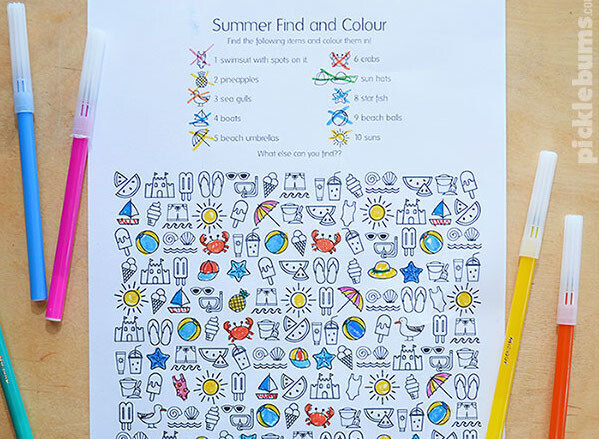 Summer Find and Colour
Find the following items and colour them in!
1 swimsuit with spots on it
2 pineapples
3 sea gulls
4 boats
5 beach umbrellas
6 crabs
7 sun hats
8 star fish
9 beach balls
10 suns
What else can you find??
picklebums.com